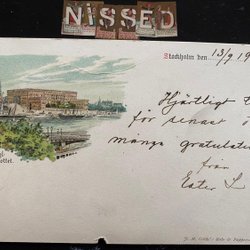 NiSSED
Stockholm den 13/9 19
Hjärtligt t
för senast o
många gratulatio
från
Ester S